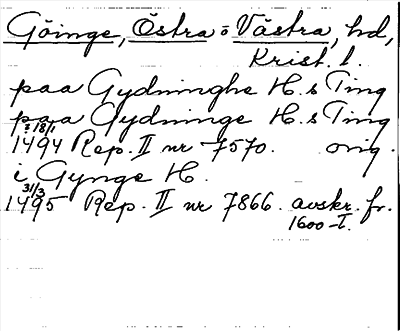 Göinge, Östra o Västra, hd,
Krist. l.
paa Gydninghe H. s Ting
paa Gydninge H. s Ting
18/1
1494 Rep. II nr 7570. orig.
i Gynge H.
31/3
1495 Rep. II nr 7866. avskr. fr.
1600-t.